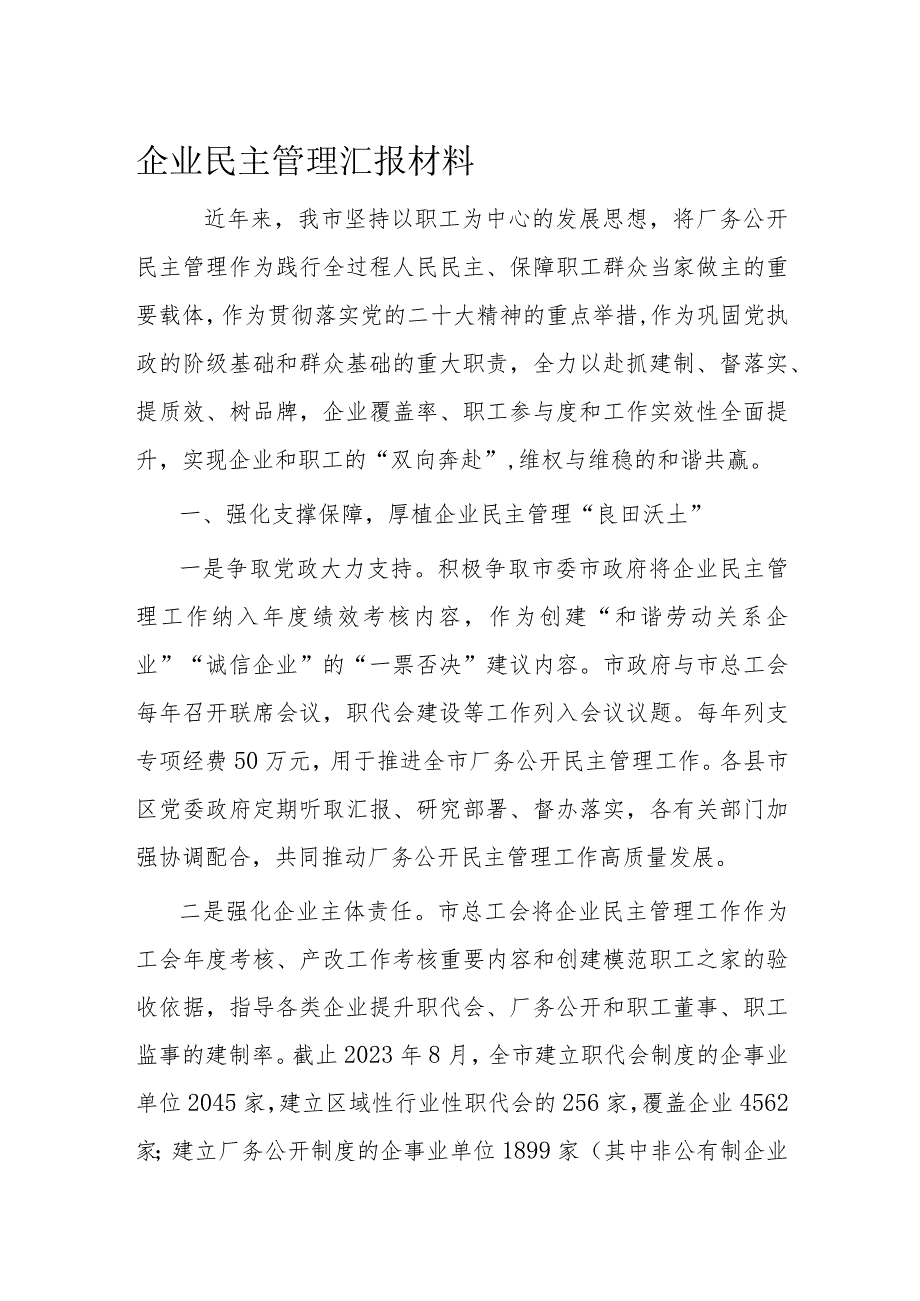 企业民主管理汇报材料
近年来，我市坚持以职工为中心的发展思想，将厂务公开
民主管理作为践行全过程人民民主、保障职工群众当家做主的重
要载体,作为贯彻落实党的二十大精神的重点举措,作为巩固党执
政的阶级基础和群众基础的重大职责，全力以赴抓建制、督落实、
提质效、树品牌，企业覆盖率、职工参与度和工作实效性全面提
升，实现企业和职工的“双向奔赴”,维权与维稳的和谐共赢。
一、强化支撑保障，厚植企业民主管理“良田沃土”
一是争取党政大力支持。积极争取市委市政府将企业民主管
理工作纳入年度绩效考核内容，作为创建“和谐劳动关系企
业”“诚信企业”的“一票否决”建议内容。市政府与市总工会
每年召开联席会议，职代会建设等工作列入会议议题。每年列支
专项经费50万元,用于推进全市厂务公开民主管理工作。各县市
区党委政府定期听取汇报、研究部署、督办落实，各有关部门加
强协调配合，共同推动厂务公开民主管理工作高质量发展。
二是强化企业主体责任。市总工会将企业民主管理工作作为
工会年度考核、产改工作考核重要内容和创建模范职工之家的验
收依据，指导各类企业提升职代会、厂务公开和职工董事、职工
监事的建制率。截止2023年8月，全市建立职代会制度的企事业
单位2045家,建立区域性行业性职代会的256家,覆盖企业4562
家;建立厂务公开制度的企事业单位1899家（其中非公有制企业